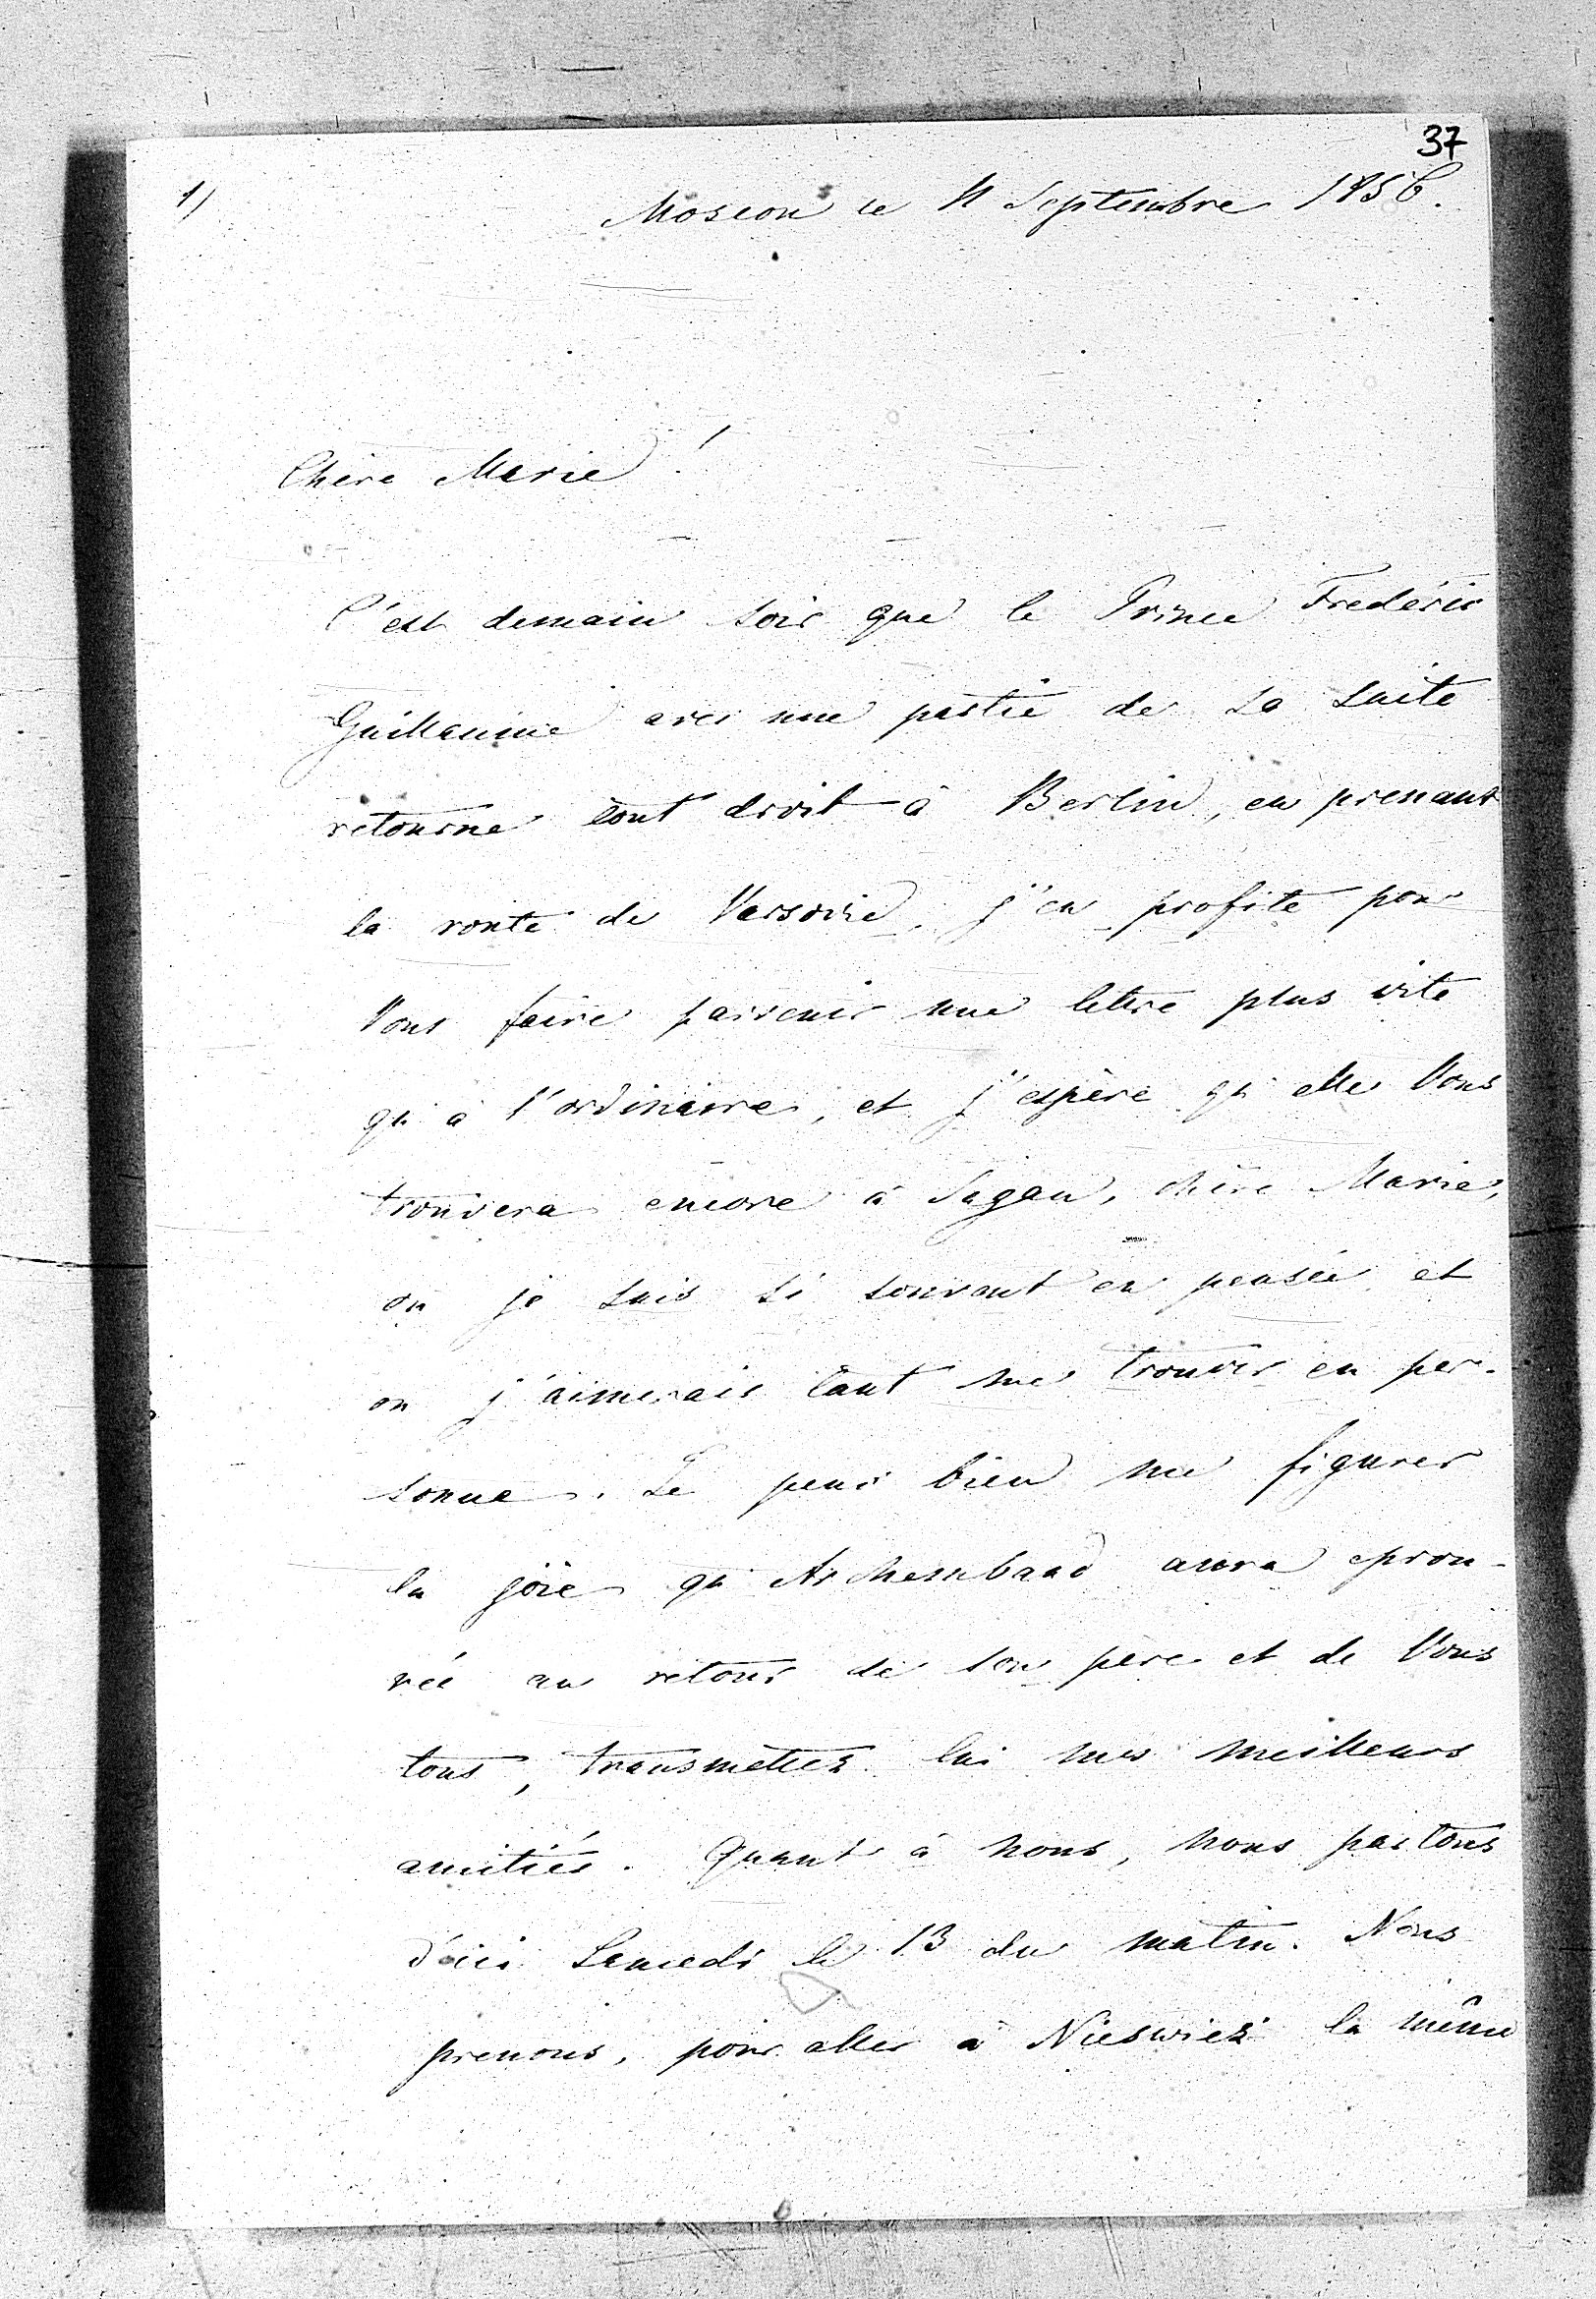 37
1)
Moscou le 11 Septembre 1856.
Chère Marie!
C'est demain soir que le Prince Frédéric
Guillaume avec une partie de sa suite
retourne tout droit à Berlin, en prenant
la route de Varsovie, j'en profite pour
Vous faire parvenir une lettre plus vite
qu'à l'ordinaire, et j'espère qu'elle Vous
trouvera encore à Sagan, chère Marie,
ou je suis si souvent en pensée et
ou j'aimerais tant me trouver en per-
sonne. Je peux bien me figurer
la joie qu'Archembaud aura éprou-
vée au retour de son père et de Vous
tous, transmettez lui mes meilleurs
amitiés. Quant à nous, nous partons
d'ici Samedi le 13 du matin. Nous
prenons, pour aller à Nieswiez la même